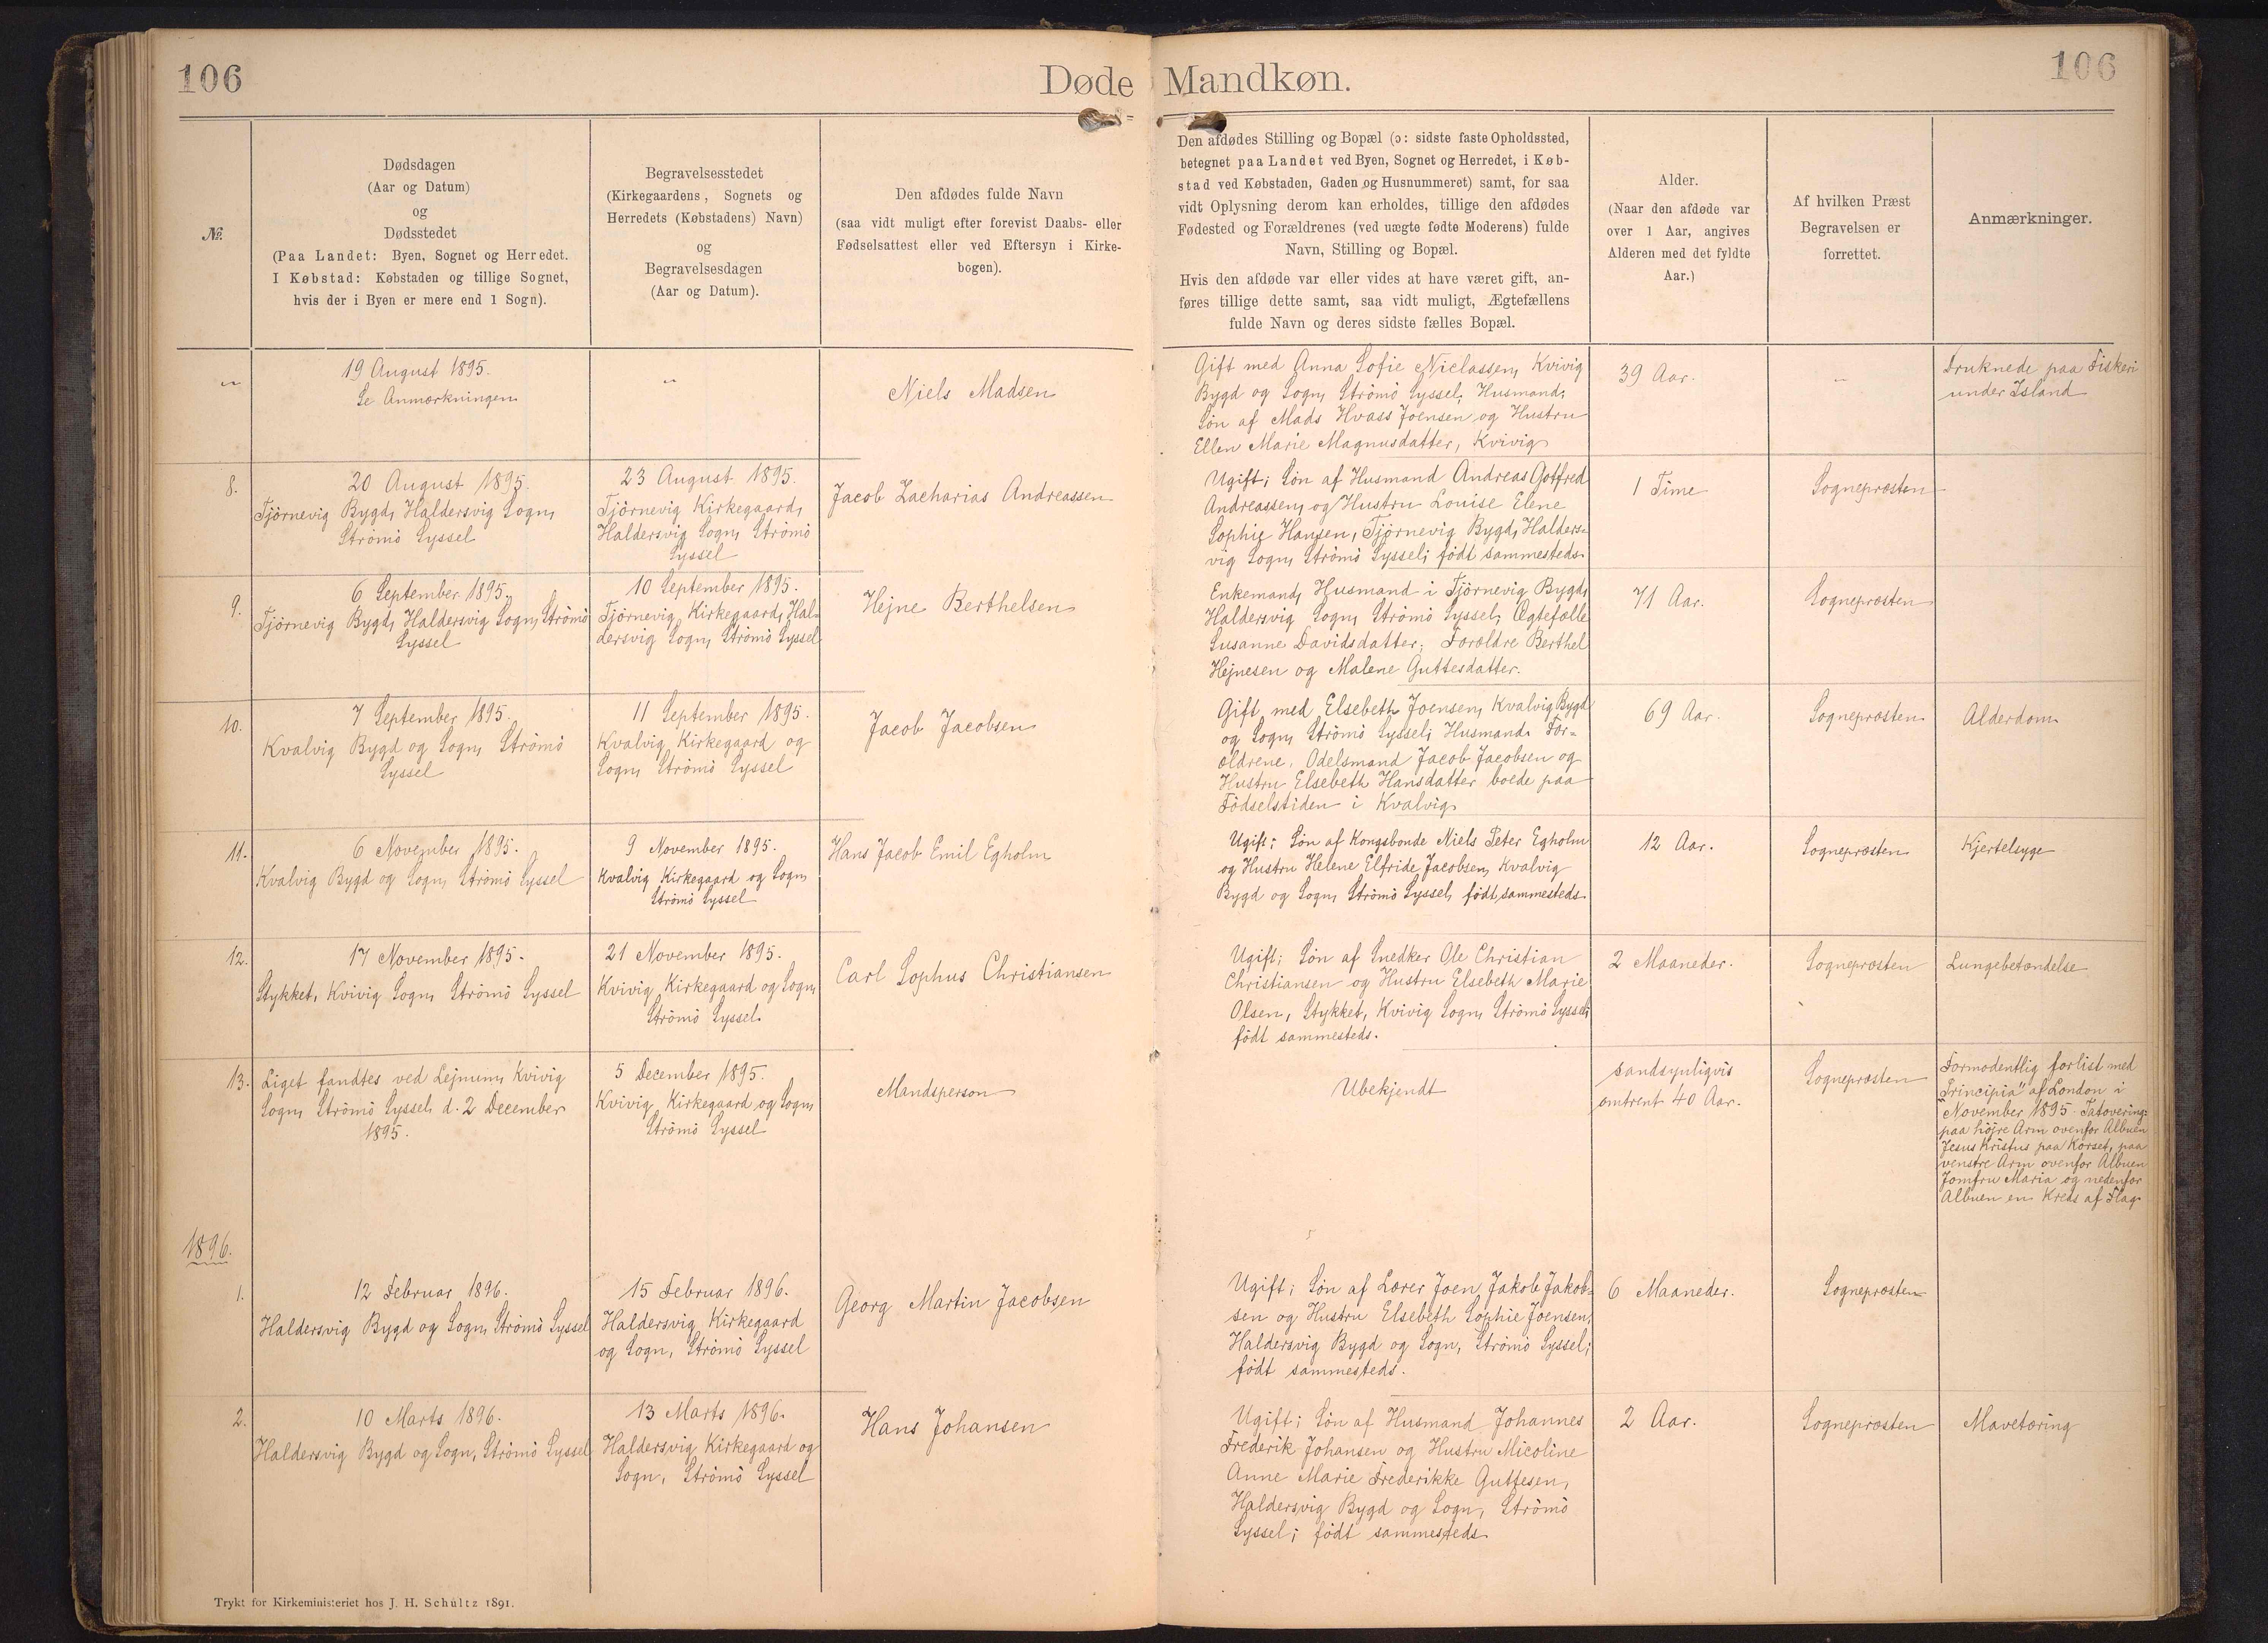 106
Døde
Mandkøn.
106
№
Dødsdagen
(Aar og Datum)
og
Dødsstedet
(Paa Landet: Byen, Sognet og Herredet.
I Købstad: Købstaden og tillige Sognet,
hvis der i Byen er mere end 1 Sogn).
Begravelsesstedet
(Kirkegaardens, Sognets og
Herredets (Købstadens) Navn)
og
Begravelsesdagen
(Aar og Datum).
Den afdødes fulde Navn
(saa vidt muligt efter forevist Daabs- eller
Fødselsattest eller ved Eftersyn i Kirke-
bogen).
Den afdødes Stilling og Bopæl (ɔ: sidste faste Opholdssted,
betegnet paa Landet ved Byen, Sognet og Herredet, i Køb-
stad ved Købstaden, Gaden og Husnummeret) samt, for saa
vidt Oplysning derom kan erholdes, tillige den afdødes
Fødested og Forældrenes (ved uægte fødte Moderens) fulde
Navn, Stilling og Bopæl.
Hvis den afdøde var eller vides at have været gift, an-
føres tillige dette samt, saa vidt muligt, Ægtefællens
fulde Navn og deres sidste fælles Bopæl.
Alder.
(Naar den afdøde var
over 1 Aar, angives
Alderen med det fyldte
Aar.)
Af hvilken Præst
Begravelsen er
forrettet.
Anmærkninger.
"
19 August 1895.
Se Anmærkningen
"
Niels Madsen
Gift med Anna Sofie Niclassen, Kvivig
Bygd og Sogn, Strömö Syssel, Husmand;
Søn af Mads Hvass Joensen og Hustru
Ellen Marie Magnusdatter, Kvivig
39 Aar.
"
Druknede paa Fiskeri
under Island
8.
20 August 1895.
Tjörnevig Bygd, Haldersvig Sogn,
Strömö Syssel
23 August 1895.
Tjörnevig Kirkegaard,
Haldersvig Sogn, Strömö
Syssel
Jacob Zacharias Andreassen
Ugift; Søn af Husmand Andreas Gotfred
Andreassen, og Hustru Louise Elene
Sophie Hansen, Tjørnevig Bygd, Halders-
vig Sogn, Strömö Syssel; født sammesteds.
1 Time
Sognepræsten
9.
6 September 1895.
Tjørnevig Bygd, Haldersvig Sogn, Strömö
Syssel
10 September 1895.
Tjörnevig Kirkegaard, Hal-
dersvig Sogn, Strömö Syssel
Hejne Berthelsen
Enkemand, Husmand i Tjörnevig Bygd,
Haldersvig Sogn, Strömö Syssel, Ægtefælle
Susanne Davidsdatter; Forældre Berthel
Hejnesen og Malene Guttesdatter.
71 Aar.
Sognepræsten
10.
7 September 1895.
Kvalvig Bygd og Sogn, Strömö
Syssel
11 September 1895.
Kvalvig Kirkegaard og
Sogn, Strömö Syssel
Jacob Jacobsen
Gift med Elsebeth Joensen, Kvalvig Bygd
og Sogn, Strömö Syssel; Husmand. For-
ældrene, Odelsmand Jacob Jacobsen og
Hustru Elsebeth Hansdatter boede paa
Födselstiden i Kvalvig.
69 Aar.
Sognepræsten
Alderdom
11.
6 November 1895.
Kvalvig Bygd og Sogn, Strömö Syssel
9 November 1895.
Kvalvig Kirkegaard og Sogn,
Strömö Syssel
Hans Jacob Emil Egholm
Ugift; Søn af Kongsbonde Niels Peter Egholm
og Hustru Helene Elfride Jacobsen, Kvalvig
Bygd og Sogn, Strömö Syssel, födt sammesteds.
12 Aar.
Sognepræsten
Kjertelsyge
12.
17 November 1895.
Stykket, Kvivig Sogn, Strömö Syssel
21 November 1895.
Kvivig Kirkegaard og Sogn,
Strömö Syssel.
Carl Sophus Christiansen
Ugift; Søn af Snedker Ole Christian
Christiansen og Hustru Elsebeth Marie
Olsen, Stykket, Kvivig Sogn, Strömö Syssel;
födt sammesteds.
2 Maaneder.
Sognepræsten
Lungebetændelse
13.
Liget fandtes ved Lejnum, Kvivig
Sogn, Strömö Syssel, d. 2 December
1895.
5 December 1895.
Kvivig Kirkegaard og Sogn,
Strömö Syssel
Mandsperson
Ubekjendt
sandsynligvis
omtrent 40 Aar.
Sognepræsten
Formodentlig forlist med
"Principia" af London i
November 1895. Tatovering:
paa höjre Arm ovenfor Albuen
Jesus Kristus paa Korset, paa
venstre Arm ovenfor Albuen
Jomfru Maria og nedenfor
Albuen en Kreds af Flag
1896.
1.
12 Februar 1896.
Haldersvig Bygd og Sogn, Strömö Syssel
15 Februar 1896.
Haldersvig Kirkegaard
og Sogn, Strömö Syssel
Georg Martin Jacobsen
Ugift; Søn af Lærer Joen Jakob Jakob-
sen og Hustru Elsebeth Sophie Joensen,
Haldersvig Bygd og Sogn, Strömö Syssel;
födt sammesteds.
6 Maaneder.
Sognepræsten
2.
10 Marts 1896.
Haldersvig Bygd og Sogn, Strömö Syssel
13 Marts 1896.
Haldersvig Kirkegaard og
Sogn, Strömö Syssel
Hans Johansen
Ugift; Søn af Husmand Johannes
Frederik Johansen og Hustru Micoline
Anne Marie Frederikke Guttesen,
Haldersvig Bygd og Sogn, Strömö
Syssel; födt sammesteds
2 Aar.
Sognepræsten
Mavetæring
Trykt for Kirkeministeriet hos J. H. Schultz 1891.